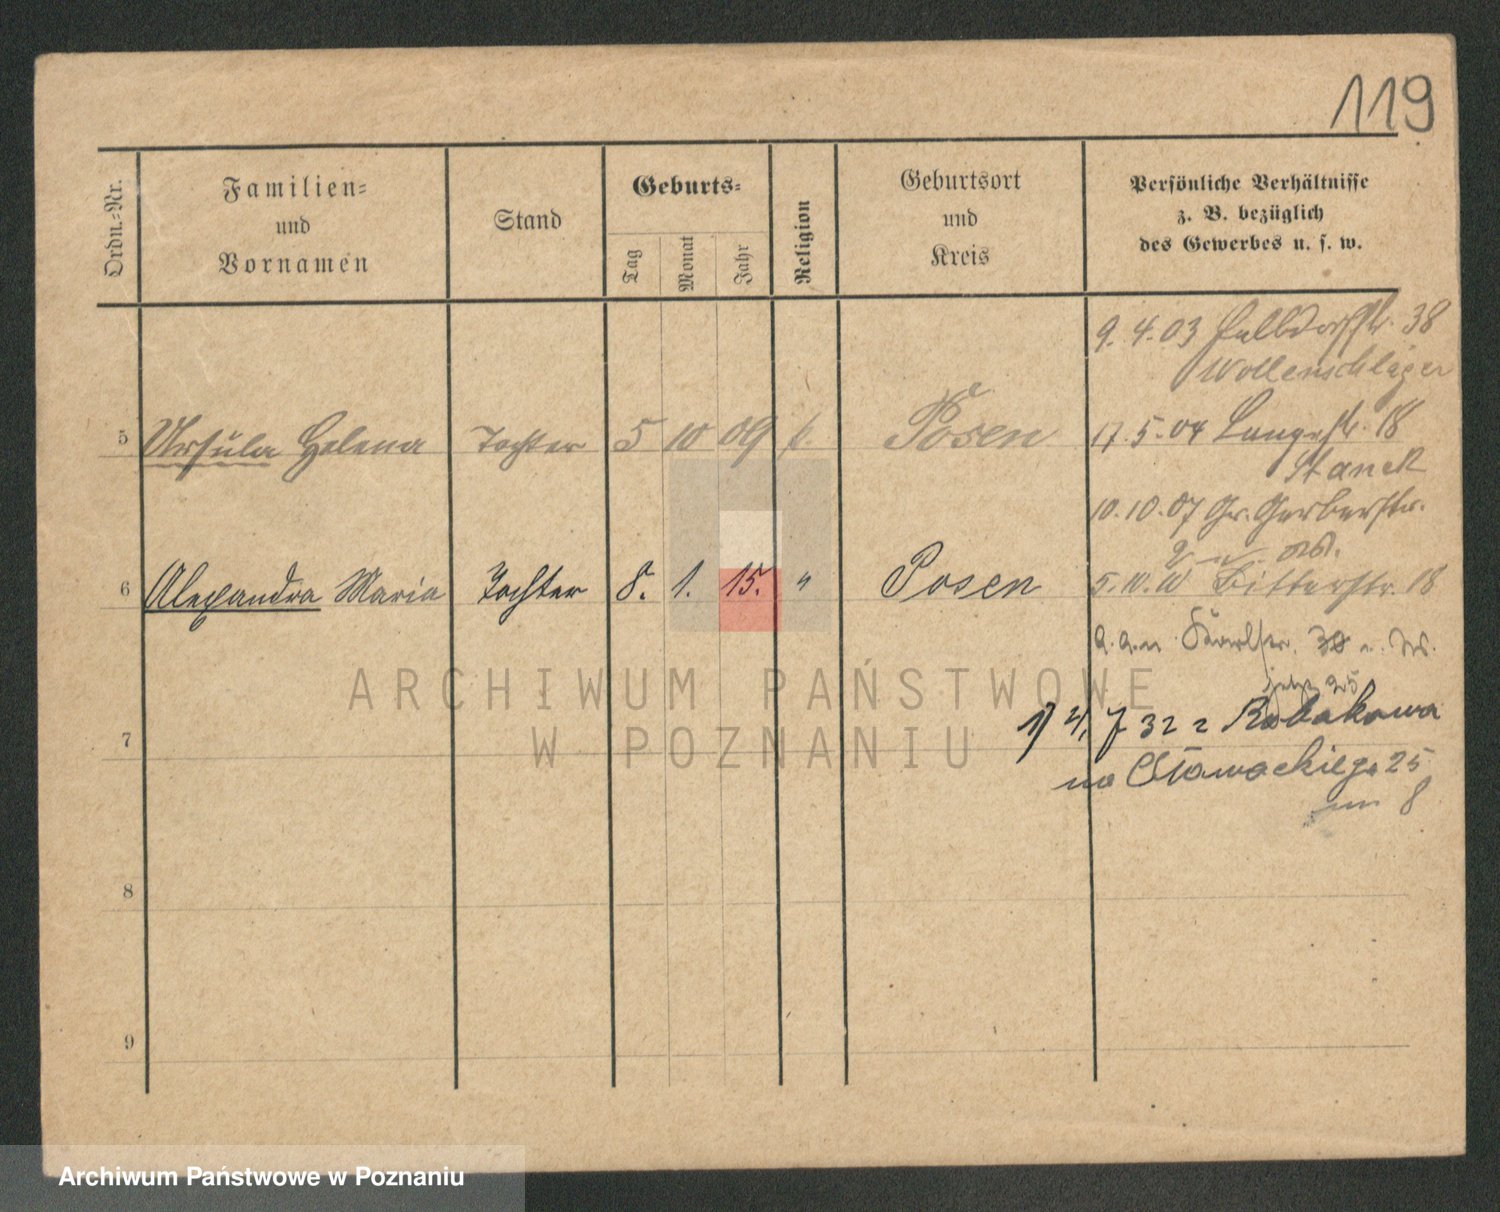 119
Ordn.-Nr.
Familien-
und
Vornamen
Stand
Geburts-
Tag
Monat
Jahr
Religion
Geburtsort
und
Kreis
Persönliche Verhältnisse
z. B. bezüglich
des Gewerbes u. s. w.
9. 4. 03 38
Wollenschläger
5 Ursula Helena Tochter 5 10 09 k. Posen
17. 5. 04 Langestr. 18
Stanek
10. 10. 07 Gr. Gerberstr.
6 Alexandra Maria Tochter 8. 1. 15. " Posen
5. 10. 10 Bitterstr. 18
7
32 z Robakowa
na Słowackiego 25
8
8
9
ARCHIWUM PAŃSTWOWE
W POZNANIU
Archiwum Państwowe w Poznaniu